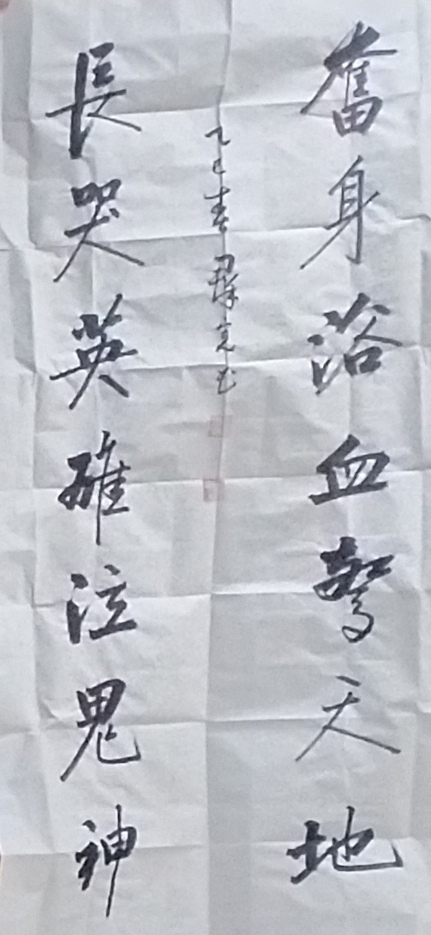 奮身浴血驚天地
長哭英雄泣鬼神
乙巳春